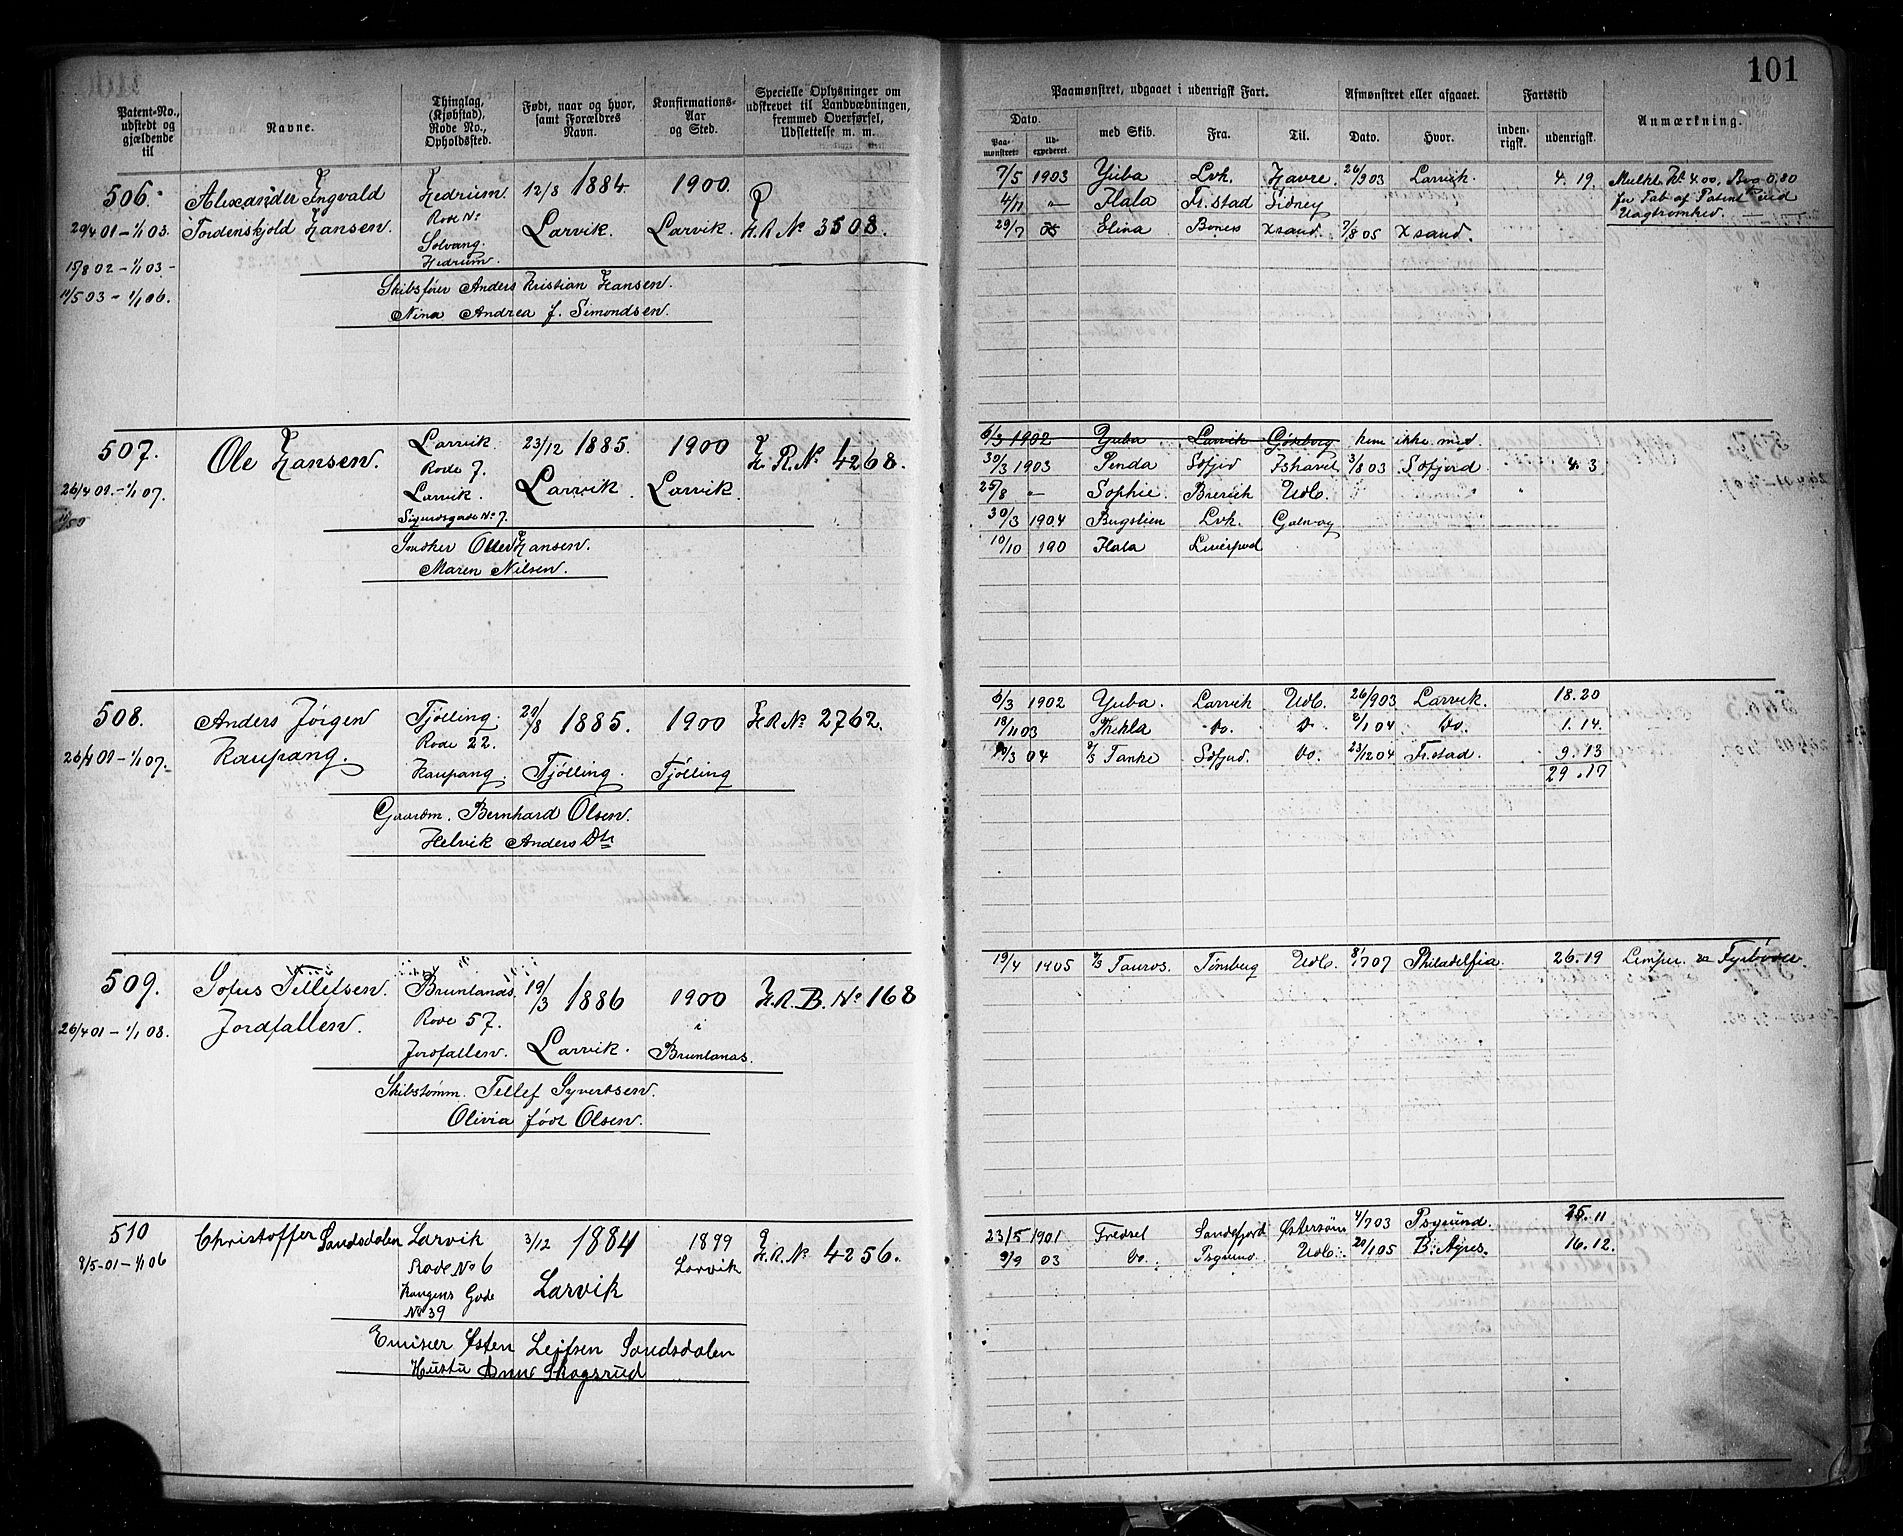 101
Patent-No., udstedt og gjældende til
Navne.
Thinglag, (Kjøbstad), Rode No., Opholdssted.
Født, naar og hvor, samt Forældres Navn.
Konfirmations-Aar og Sted.
Specielle Oplysninger om udskrevet til Landværnbningen, fremmed Overførsel, Udslettelse m. m.
Paamønstret, udgaaet i udenrigsk Fart.
Afmønstret eller afgaaet.
Fartstid
Anmærkning.
Dato.
Paamønstret.
Udexpederet.
med Skib.
Fra.
Til.
Dato.
Hvor.
indenrigsk.
udenrigsk.
506.
29/4 01 – 1/1 03.
15/8 02 – 1/1 03 –
14/5 03 – 1/1 06.
Alexander Ingvald
Tordenskjold Hansen.
Hedrum.
Rode No
Solvang.
Hedrum.
12/8 1884.
Larvik.
1900.
Larvik.
H.R. No 3508.
Skibsfører Anders Kristian Hansen.
Nina Andrea f. Simondsen.
7/5 1903 Yuba Lvk. Havre. 26/9 03 Larvik. 4. 19.
4/11 – " – Hala Fr.stad Sidney
29/7 05 Elina Xsand. 7/8 05 Xsand.
Mulkt. Kr 4.00, Bog 0.80
for Tab af Patent ved
Uagtsomhed. —
507.
26/4 01 – 1/1 07.
Ole Hansen.
Larvik.
Rode 7.
Larvik.
Sigurdsgade No 7.
23/12 1885.
Larvik.
1900
Larvik.
H. R. No. 4268.
Hansen.
Maren Nilsen.
6/3 1902 Yuba. Larvik Gøteborg kom ikke med
30/3 1903 Penda Sfjord 3/8 03 Sfjord 4. 3
25/8 – Sophie. Brevik Udl.
30/3 1904 Lvk. Galway
10/10 190 Hala Liverpool
508.
26/4 01 – 1/1 07.
Anders Jørgen
Kaupang.
Tjølling.
Rode 22.
Kaupang.
20/8 1885.
Tjølling.
1900
Tjølling
H.R. No 2762.
Gaardm. Bernhard Olsen.
Helvik Anders Dtr
6/3 1902 Yuba. Larvik Udl. 26/9 03 Larvik. 18.20
18/11 03 Thekla Do. Do 2/1 04 Do. 1.14.
10/3 04 D/S Tanke Sfjord. Do. 23/12 04 Fr.stad. 9.13
29.17
509.
26/4 01 – 1/1 08.
Sofus Tellefsen
Jordfallen.
Brunlanæs.
Rode 57.
Jordfallen.
19/3 1886
Larvik.
1900
i
Brunlanæs.
H.R.B. No 168
Skibstømm. Tellef Syvertsen.
Olivia født Olsen.
19/4 1905 D/S Tauros. Tønsberg Udl. 8/1 07 Philadelfia 26.19 Lemper. Fyrbøder.
510
8/5-01 – 1/1 06
Christoffer Sandsdalen
Larvik
Rode No 6
Kongens Gade
No 39
3/12 1884
Larvik
1899
Larvik
H.R. No 4256.
Østen Leifsen Sandsdalen
Hustu Anne Skogsrud
23/5 1901 Fredsel Sandefjord Østersøen 4/7 03 Psgrund. 25.11
9/9 03 Do. Psgrund. Udl. 20/1 05 B. Ayres. 16.12.